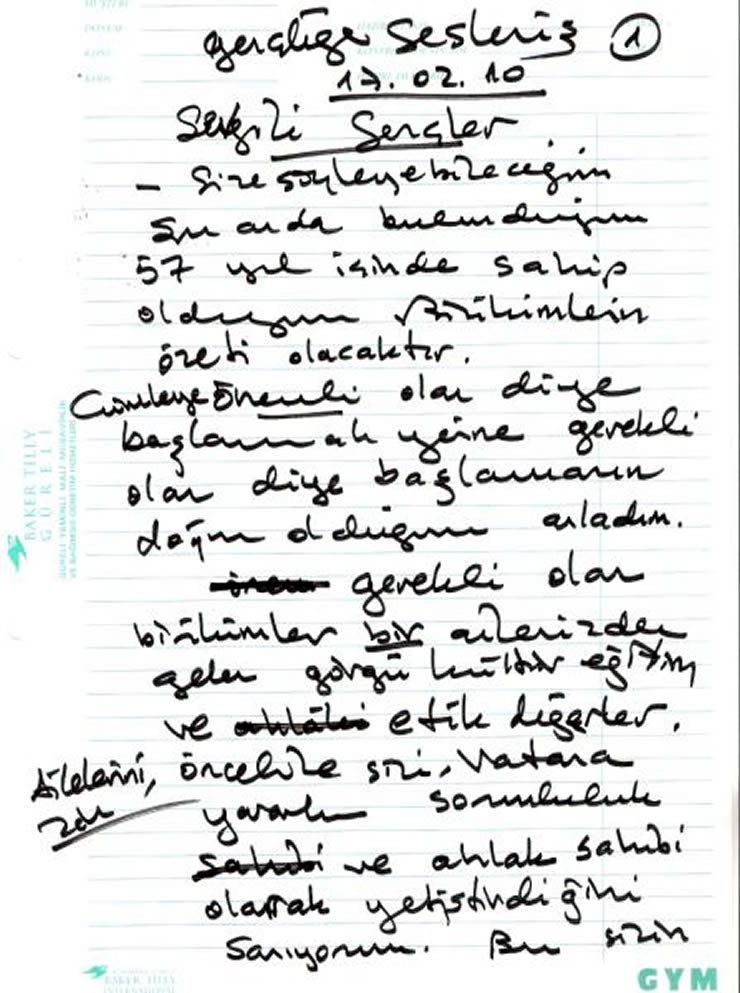 gençliğe Sesleniş 1
17.02.10
Sevgili Gençler
- Size söyleyebileceğim
şu anda bulunduğum
57 yıl içinde sahip
olduğum birikimlerin
özeti olacaktır.
Cümleye önemli olan diye
başlamak yerine gerekli
olan diye başlamanın
doğru olduğunu anladım.
gerekli olan
birikimler bir ailenizden
gelen görgü kültür eğitim
ve ahlâki etik değerler.
Ailelerini, öncelikle sizi, Vatana
zin yararlı sorumluluk
sahibi ve ahlak sahibi
olarak yetiştirdiğini
sanıyorum. Bu sizin
BAKER TILLY
GÜRELİ
GÜRELİ YEMİNLİ MALİ MÜŞAVİRLİK
VE BAĞIMSIZ DENETİM HİZMETLERİ
BAKER TILLY
INTERNATIONAL
GYM